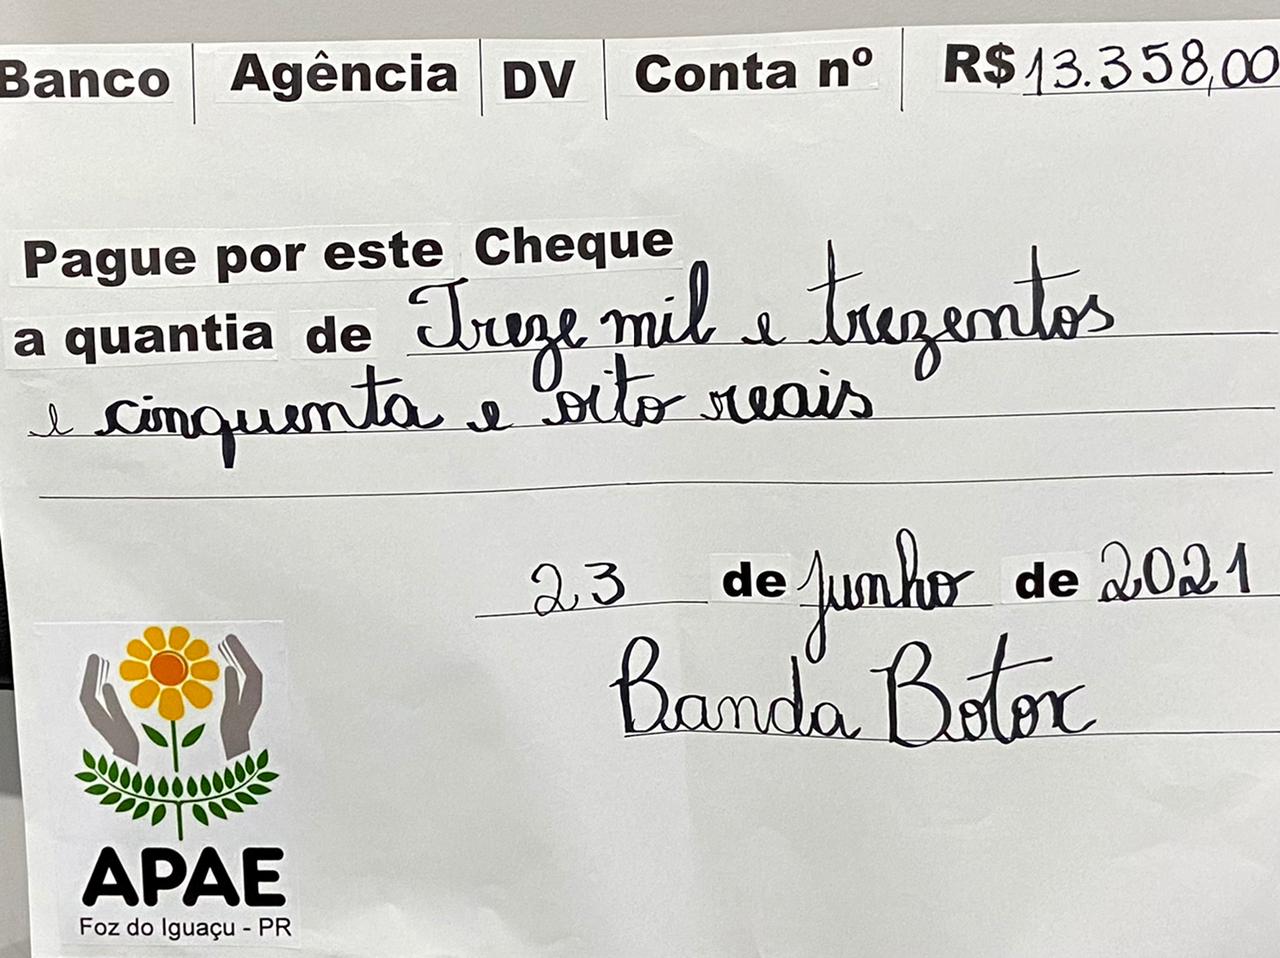 Banco Agência DV Conta nº R$ 13.358,00
Pague por este Cheque
a quantia de Treze mil e trezentos
e cinquenta e oito reais
23 de junho de 2021
Banda Botox
APAE
Foz do Iguaçu - PR